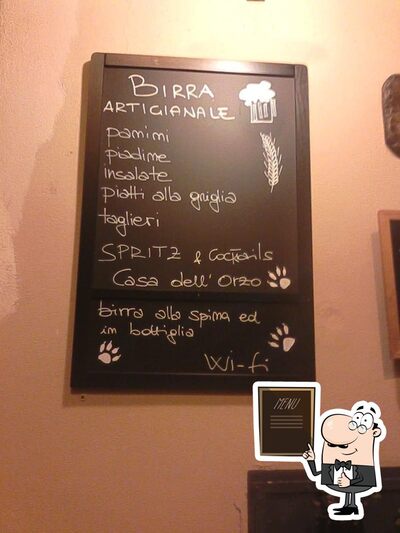 BIRRA
ARTIGIANALE
panini
piadine
insalate
piatti alla griglia
taglieri
SPRITZ & Cocktails
Casa dell'Orzo
birra alla spina ed
in bottiglia
Wi-fi
MENU